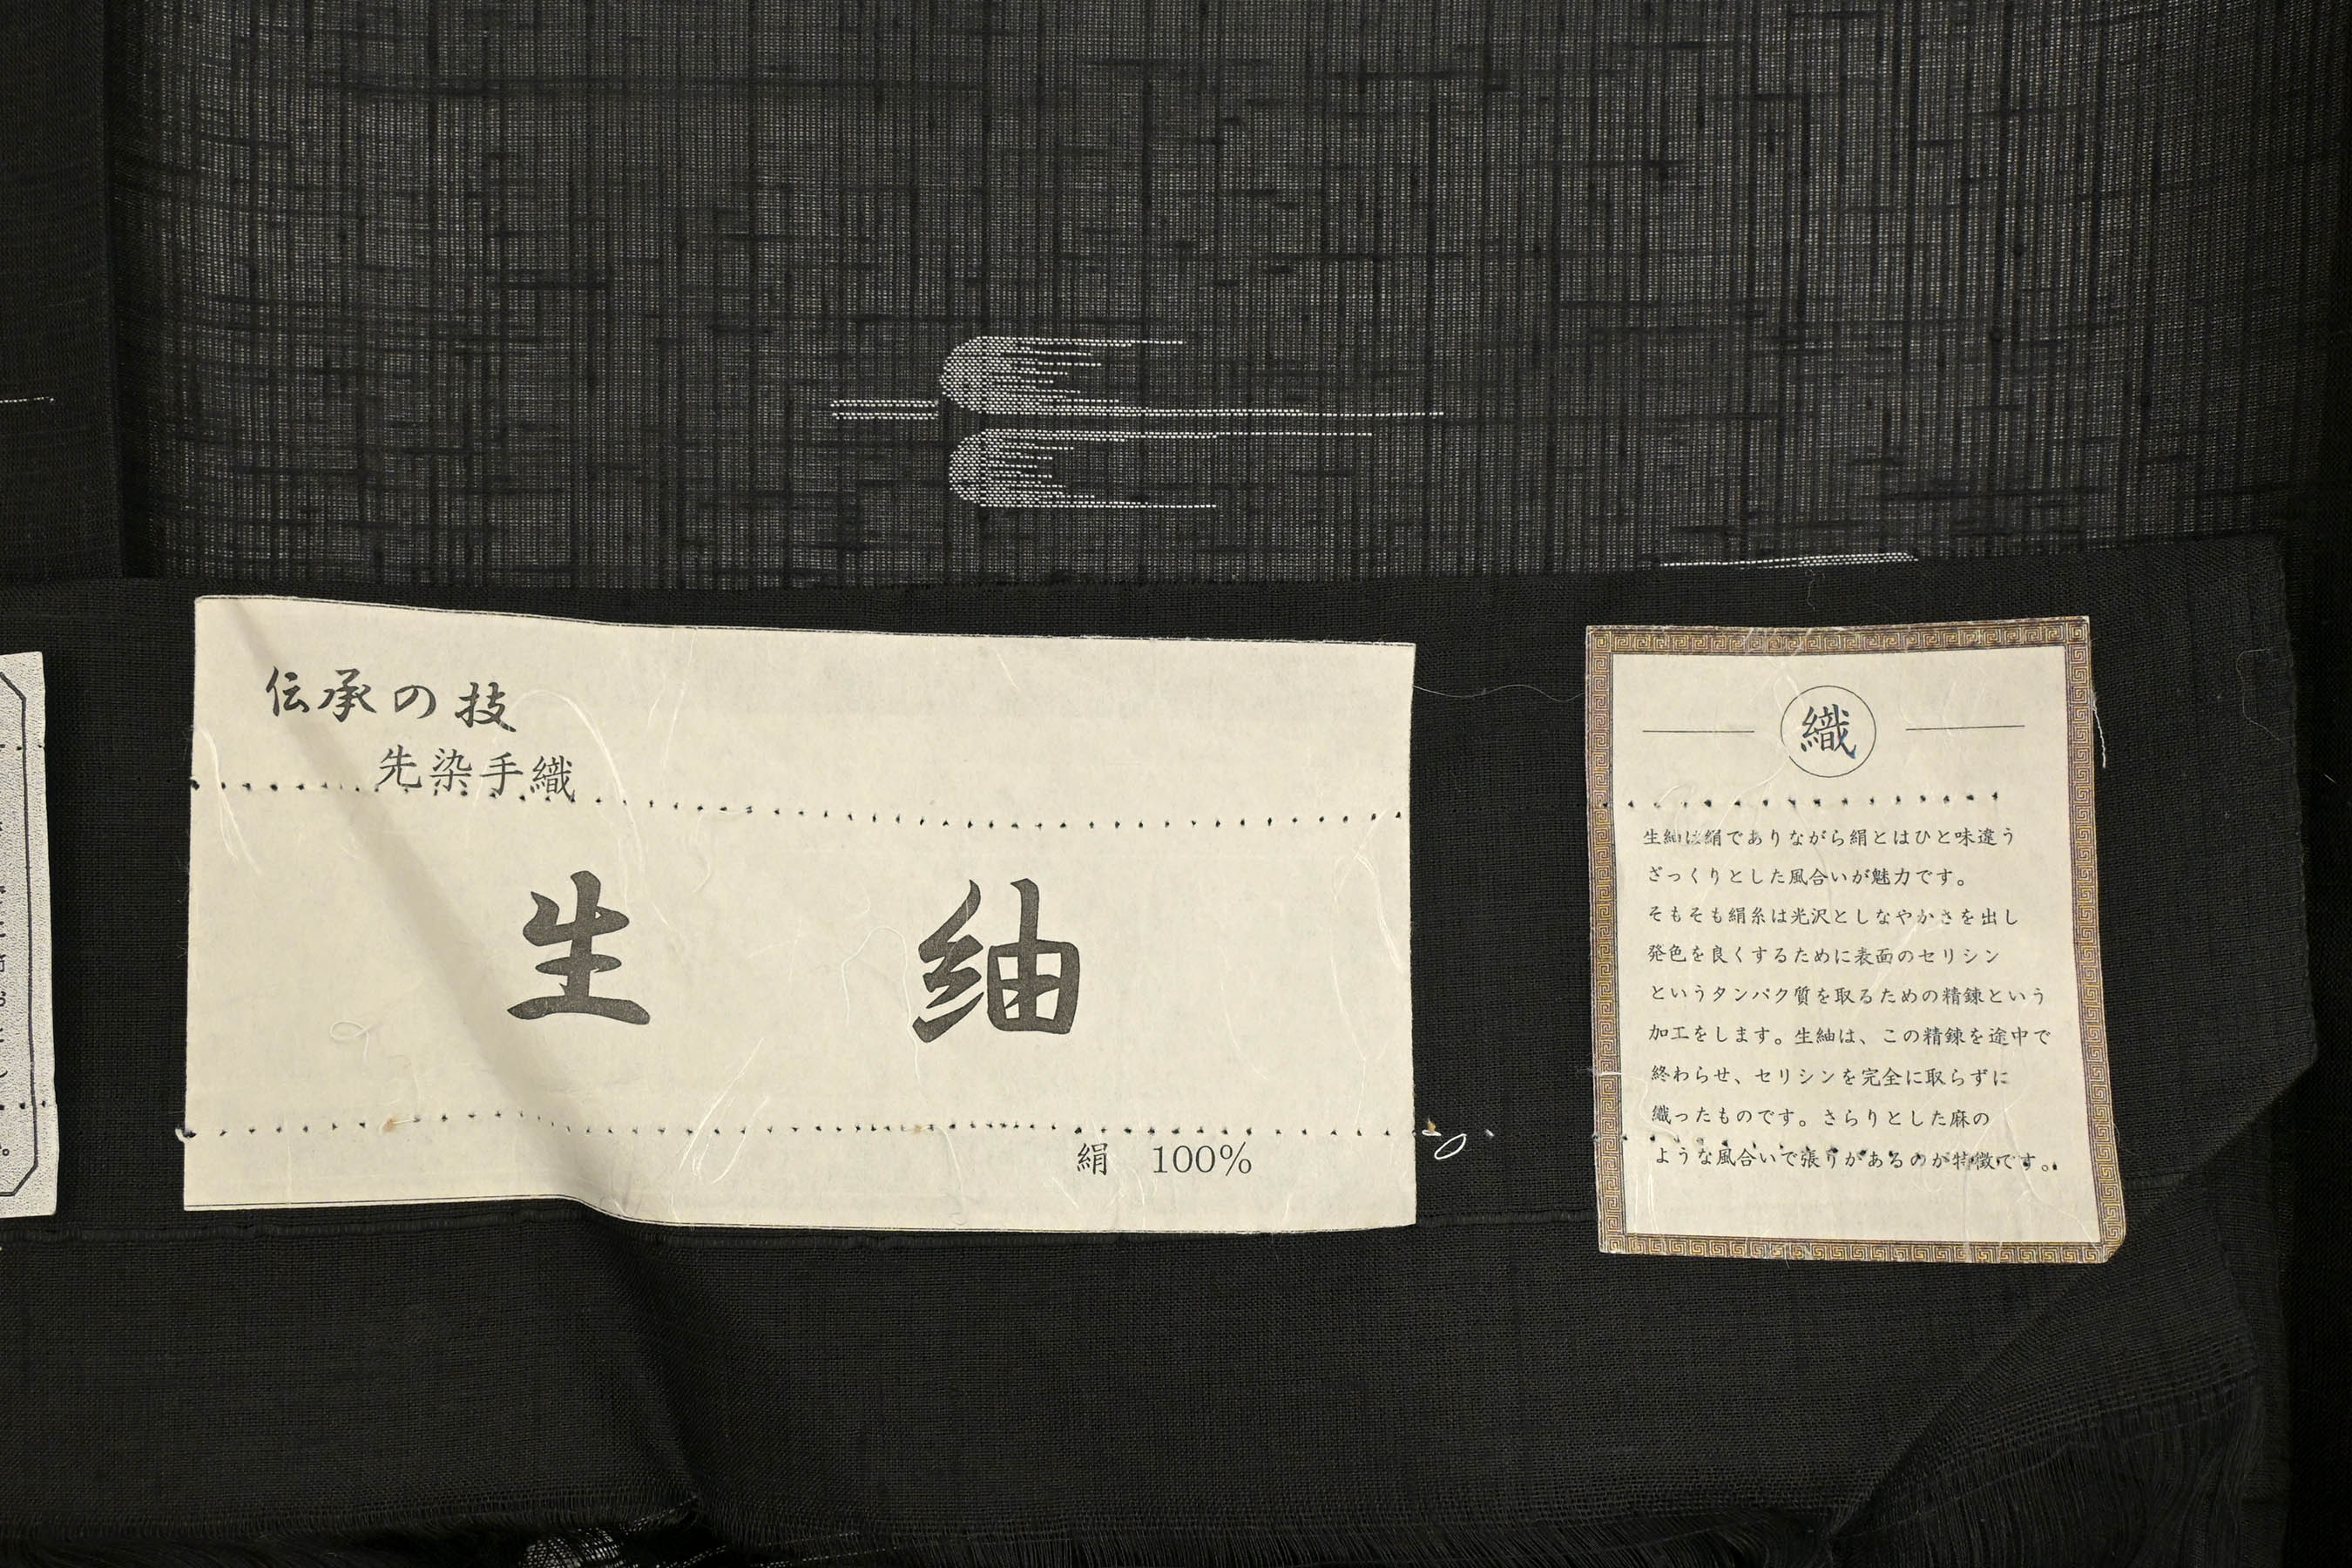 伝承の技
先染手織
生 紬
絹 100%
織
生紬は絹でありながら絹とはひと味違う
ざっくりとした風合いが魅力です。
そもそも絹糸は光沢としなやかさを出し
発色を良くするために表面のセリシン
というタンパク質を取るための精錬という
加工をします。生紬は、この精錬を途中で
終わらせ、セリシンを完全に取らずに
織ったものです。さらりとした麻の
ような風合いで張りがあるのが特徴です。